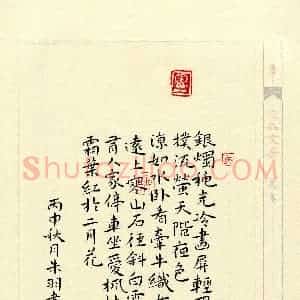 銀燭秋光冷畫屏輕
撲流螢天階夜色
涼如水卧看牽牛織
遠上寒山石徑斜白雲
有人家停車坐愛楓
霜葉紅於二月花
丙申秋月朱羽書